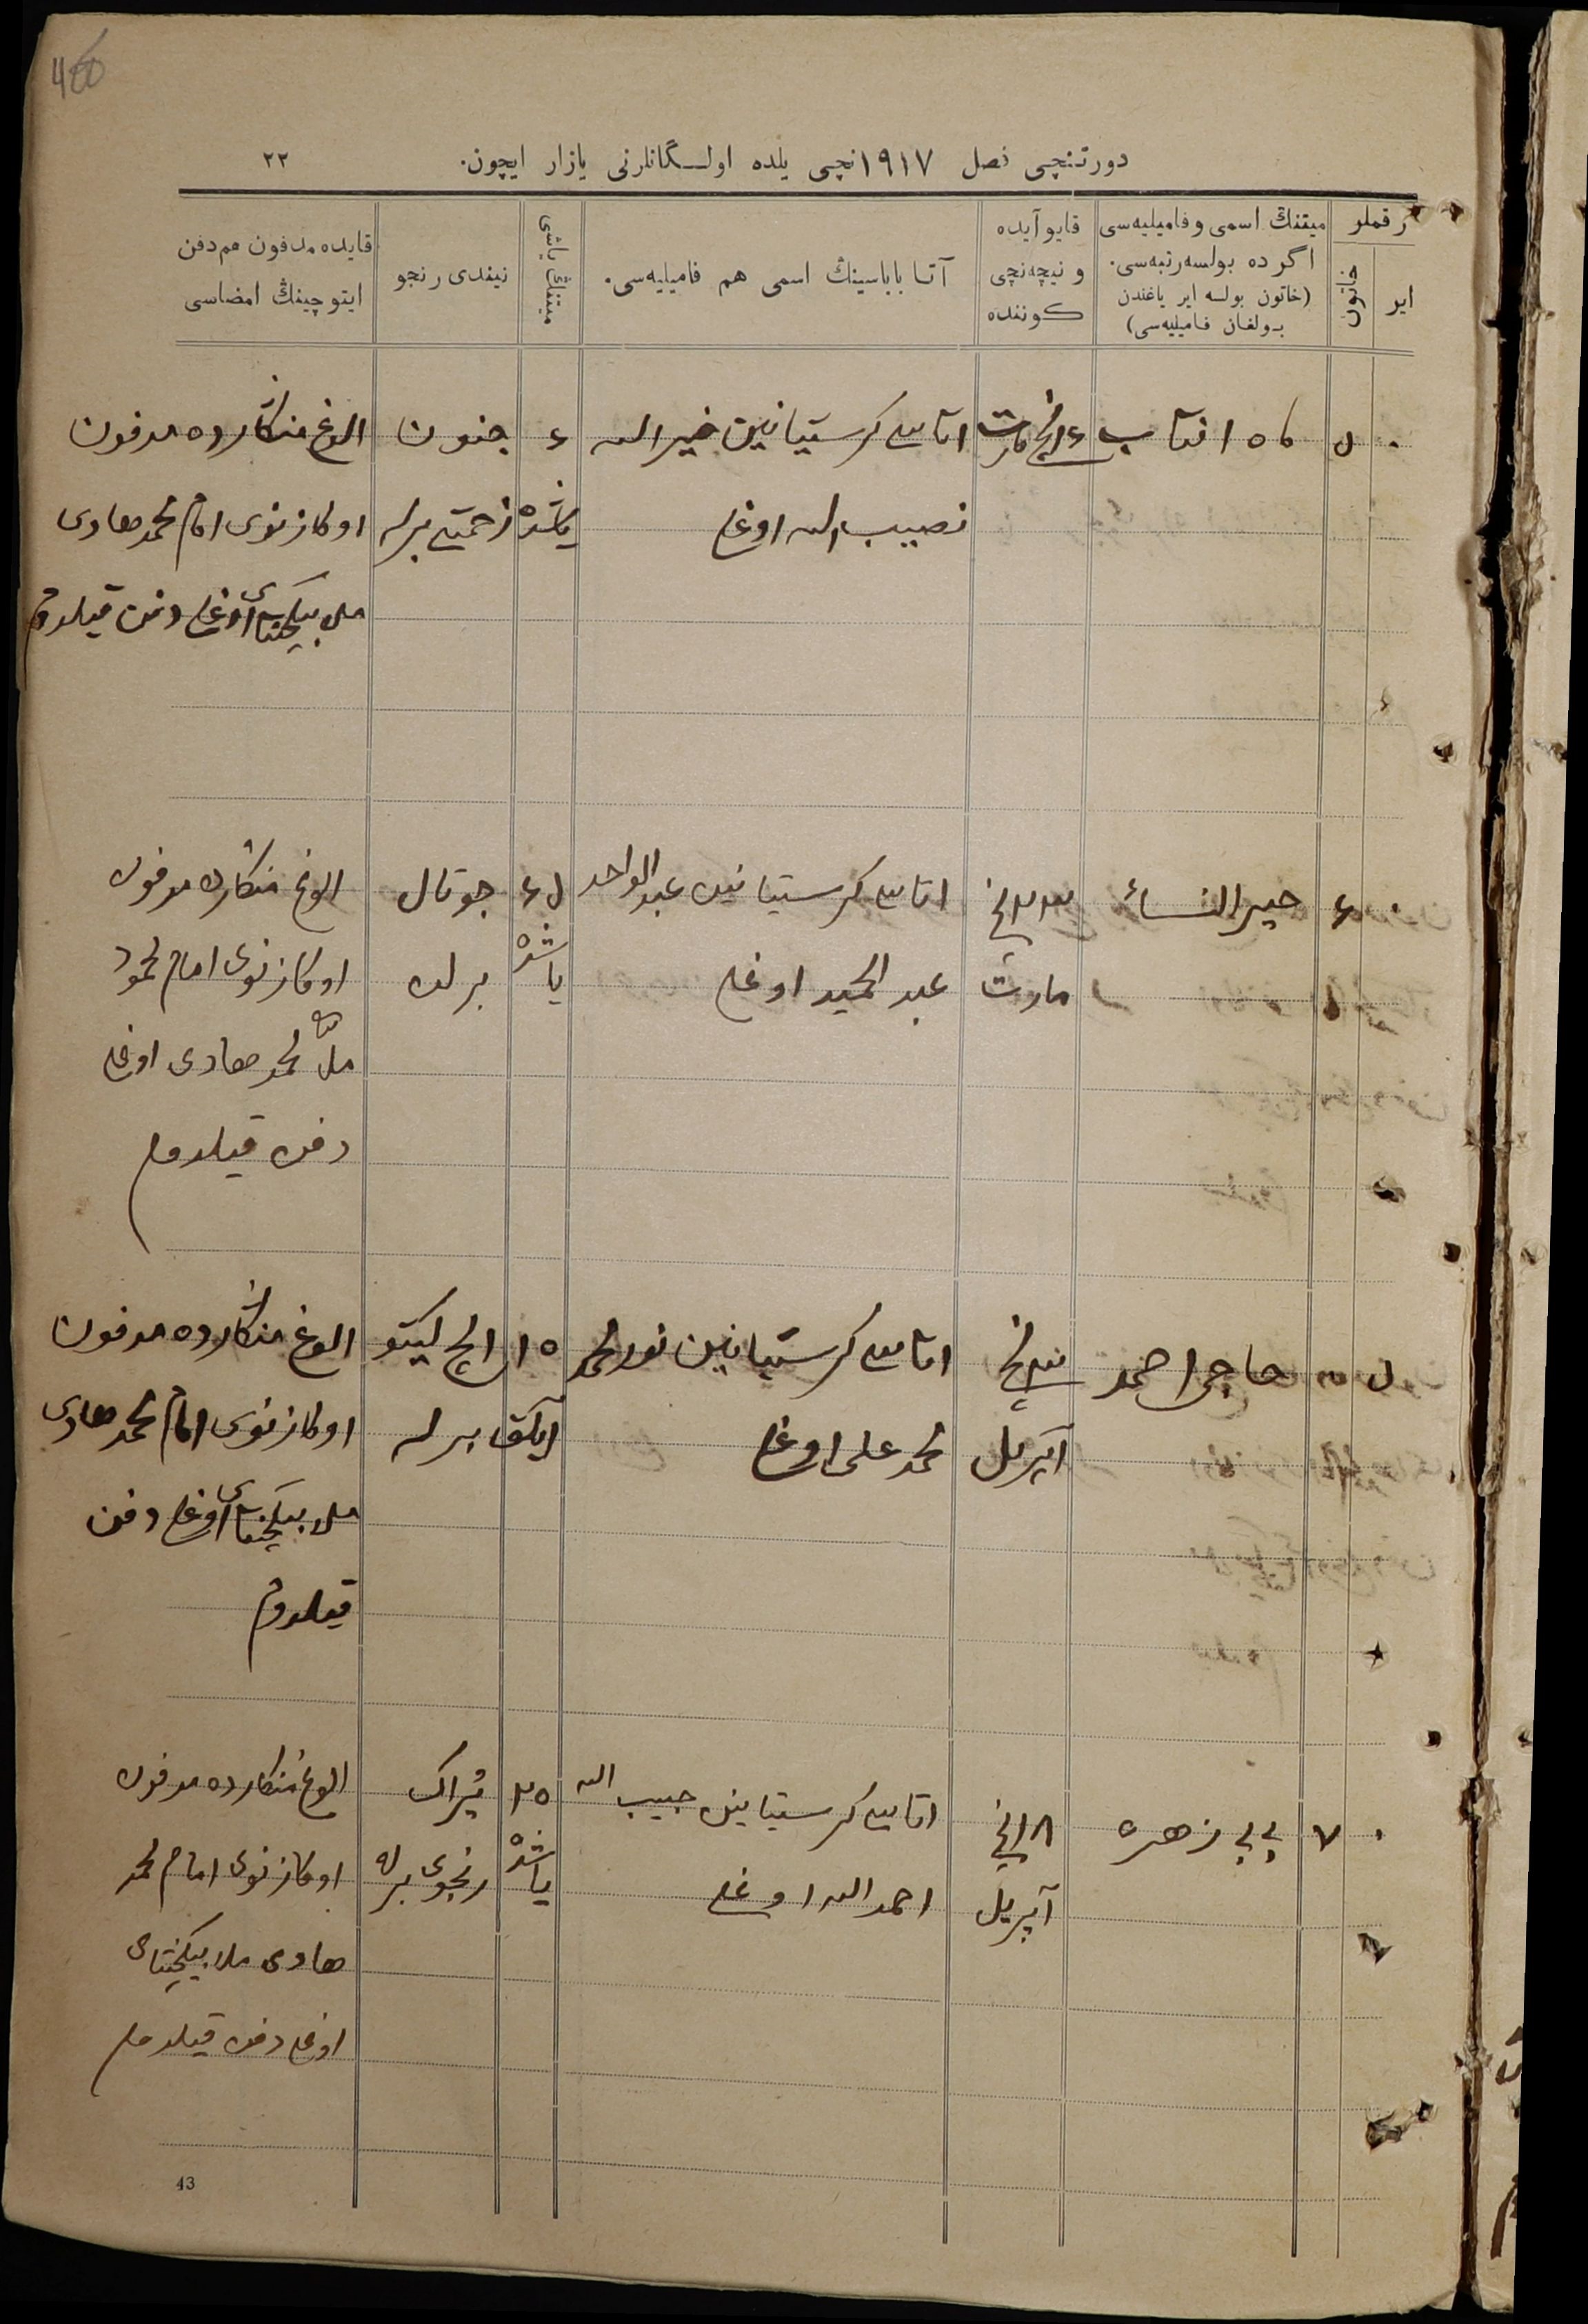 460
دورتنچی فصل ١٩١٧نچی یلده اولسگانلرنی یازار ایچون.
٢٢
رقملر
ایر
خاتون
میتنڭ اسمی و فامیلیه‌سی
اگر ده بولسه رتبه‌سی.
(خاتون بولسه ایر یاغندن
بولغان فامیلیه‌سی)
قایو آیده
و نیچه‌نچی
کوننده
آتا باباسینڭ اسمی هم فامیلیه‌سی.
میتنڭ یاشی
نیندی رنجو
قایده مدفون هم دفن
ایتوچینڭ امضاسی
ماه افتاب
مارت
اتاسی کرستیانین خیرالله
جنون
الوغ منگارده مدفون
نصیب الله اوغلی
یاشده
زحمتی برله
اوکازنوی امام محمد هادی
ملا بیکچنتای اوغلی دفن قیلدم
خیرالنساء
مارت
اتاسی کرستیانین عبدالواحد
عبدالحمید اوغلی
یاشده
جوتال
برله
الوغ منگارده مدفون
اوکازنوی امام محمود
ملا محمد هادی اوغلی
دفن قیلدم
حاجی احمد
آپریل
اتاسی کرستیانین نورمحمد
محمد علی اوغلی
١٥
آیلق
ایچ کیتو
برله
الوغ منگارده مدفون
اوکازنوی امام محمد هادی
ملا بیکچنتای اوغلی دفن
قیلدم
٧
بی بی زهره
١٨نچی
آپریل
اتاسی کرستیانین حبیب الله
احمدالله اوغلی
٣٥
یاشده
یُراک
رنجوی برله
الوغ منگارده مدفون
اوکازنوی امام محمد
هادی ملا بیکچنتای
اوغلی دفن قیلدم
43